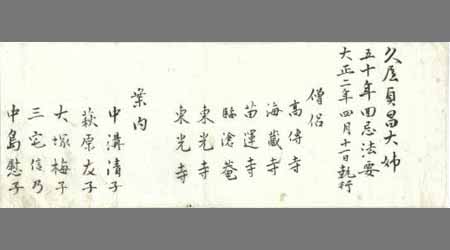 久屋貞昌大姉
五十年回忌法要
大正二年四月十一日執行
僧侶
高傳寺
海蔵寺
苗運寺
臨滄菴
東光寺
東光寺
案内
中溝清子
萩原友子
大塚梅子
三宅信乃
中島慰子